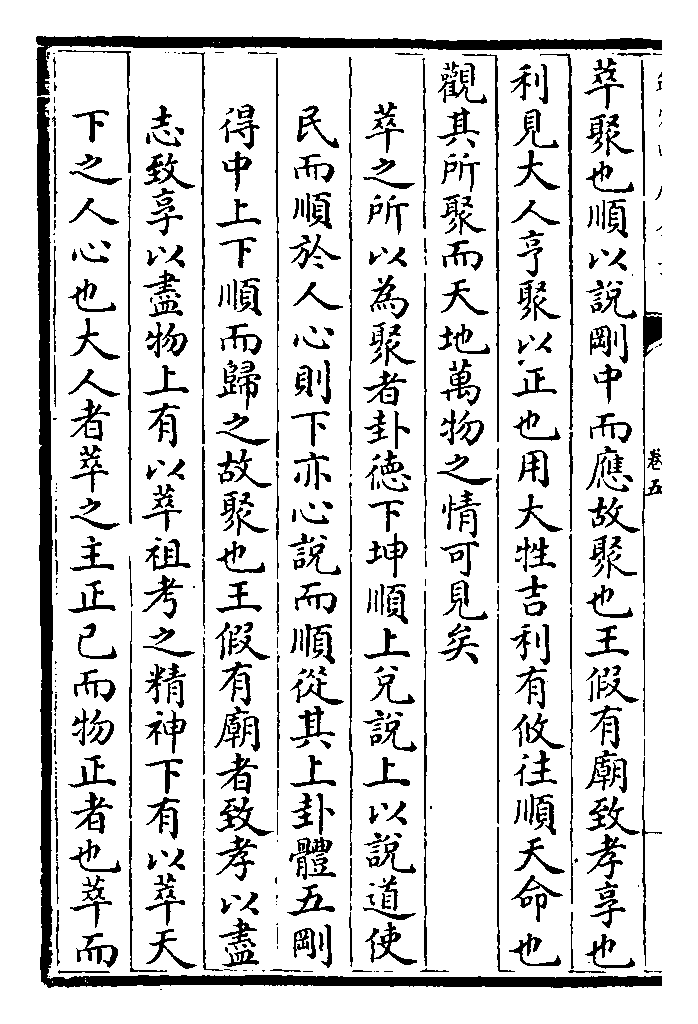 萃聚也順以說剛中而應故聚也王假有廟致孝享也
利見大人亨聚以正也用大牲吉利有攸往順天命也
觀其所聚而天地萬物之情可見矣
萃之所以為聚者卦徳下坤順上兌說上以說道使
民而順於人心則下亦心說而順從其上卦體五剛
得中上下順而歸之故聚也王假有廟者致孝以盡
志致享以盡物上有以萃祖考之精神下有以萃天
下之人心也大人者萃之主正已而物正者也萃而
卷五